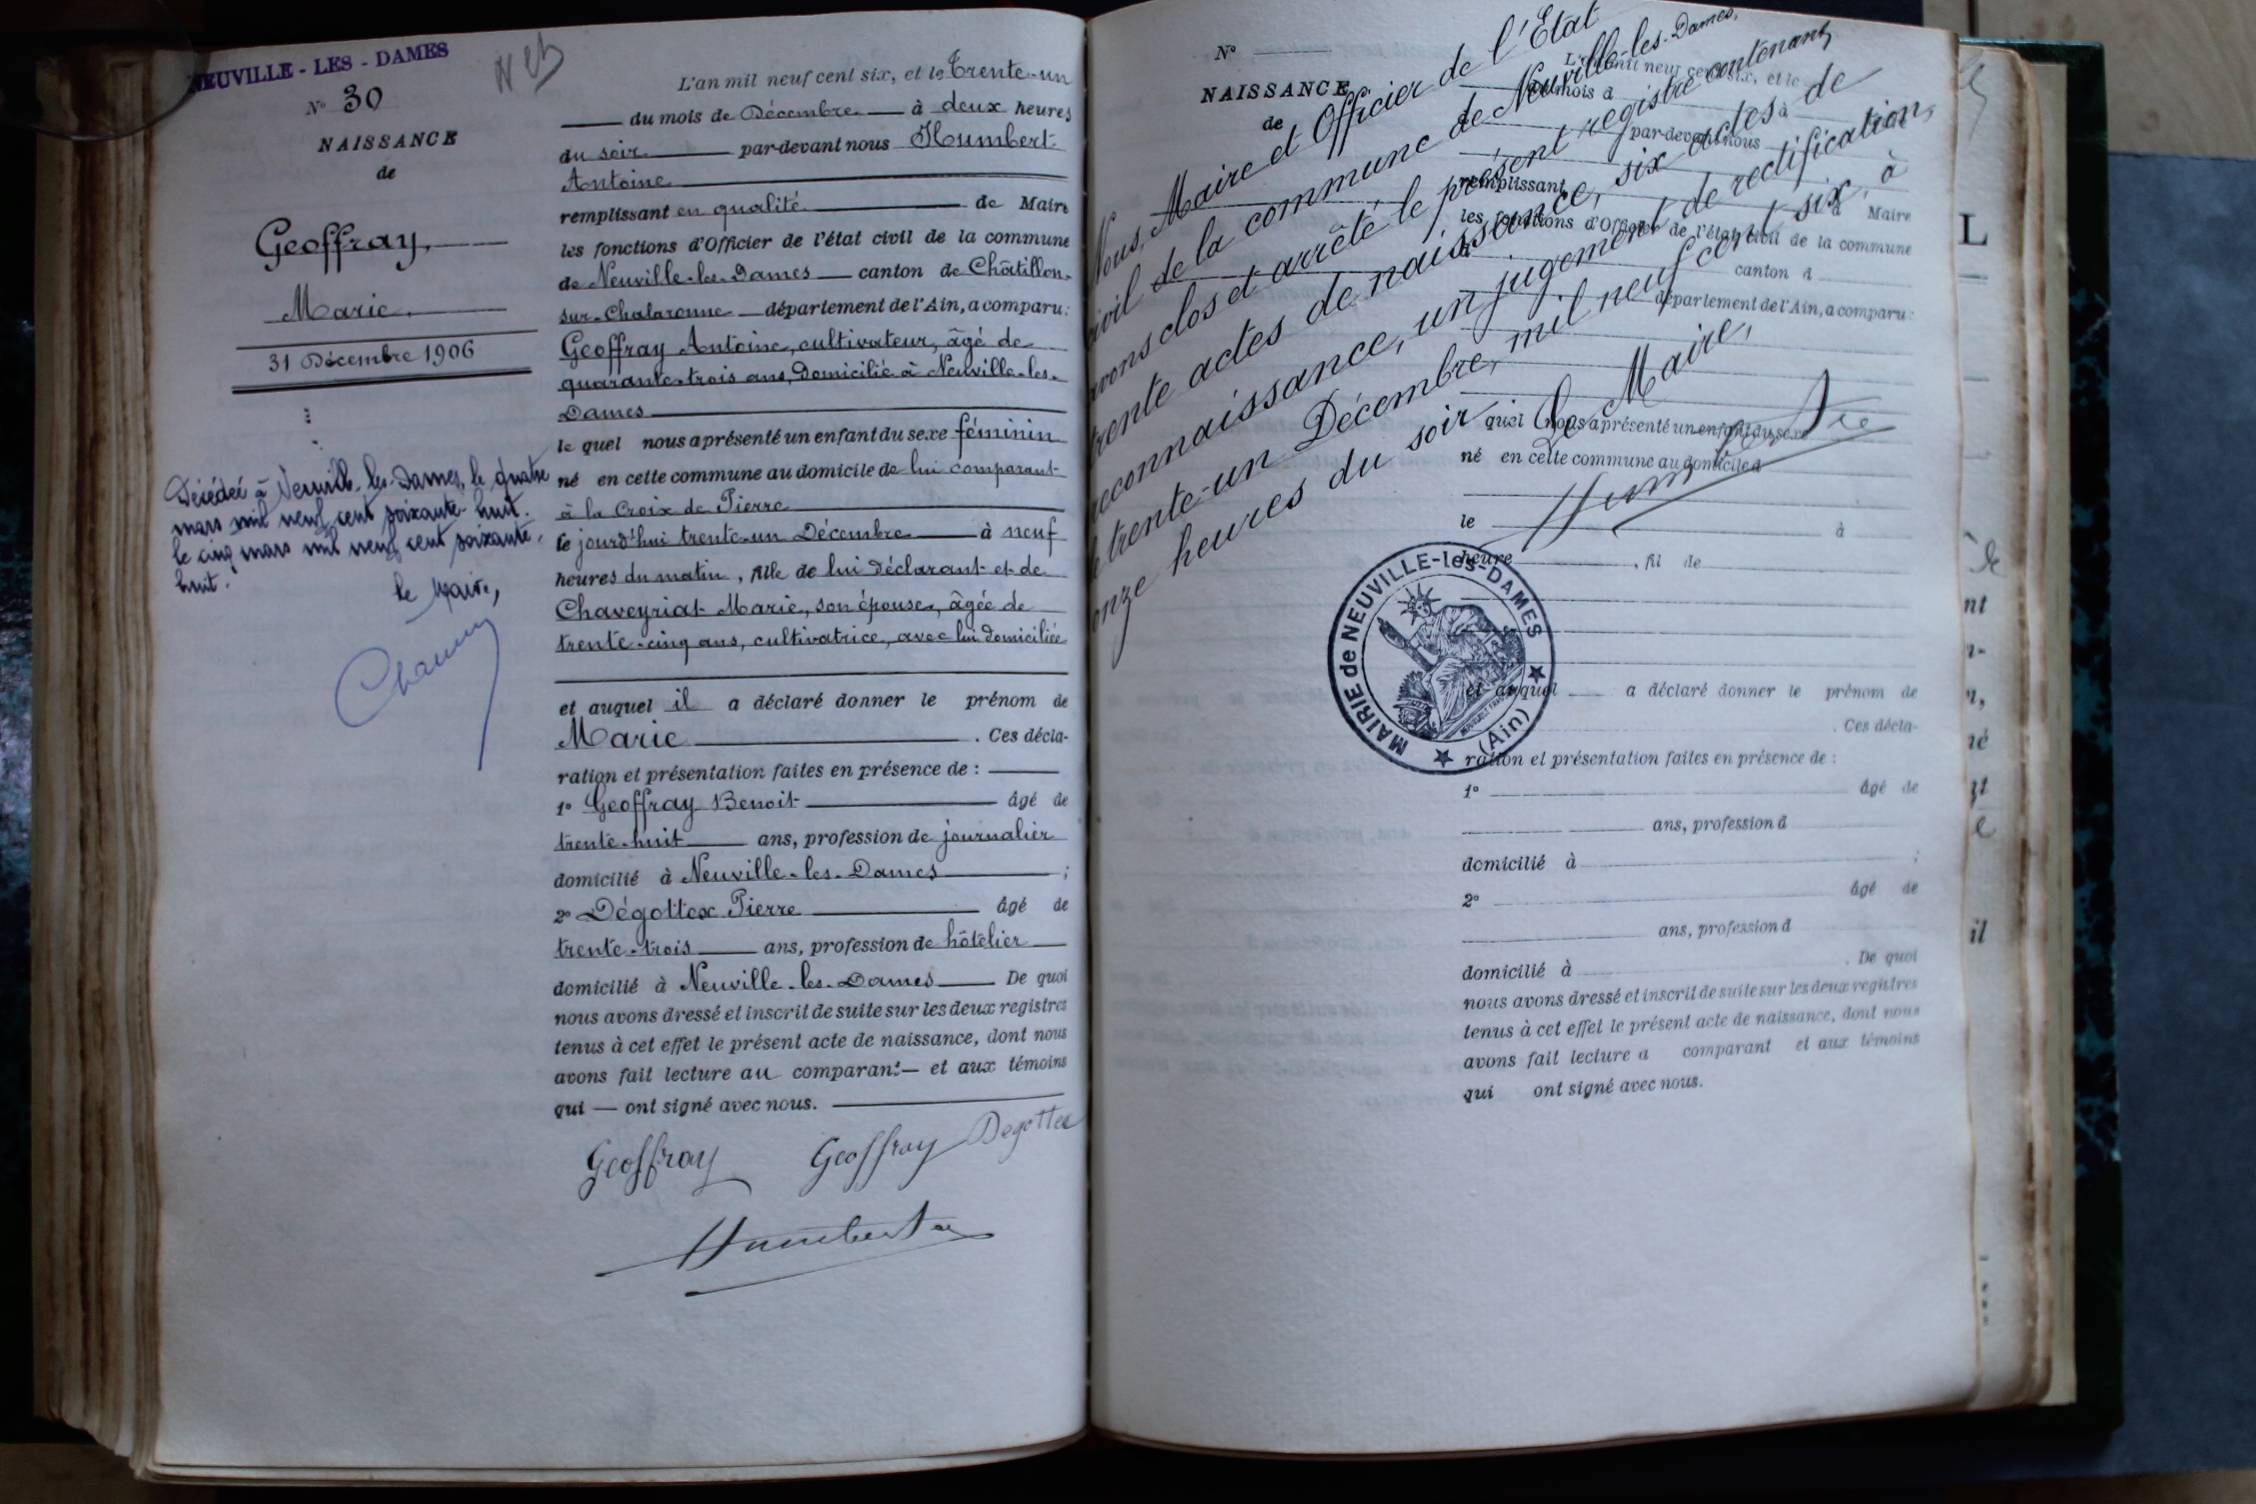 NEUVILLE - LES - DAMES
N° 30
NAISSANCE
de
Geoffray,
Marie.
31 Décembre 1906
Décédée à Neuville-les-Dames, le quatre
mars mil neuf cent soixante-huit.
le cinq mars mil neuf cent soixante-
huit.
le Maire,
L'an mil neuf cent six, et le Trente-un
du mois de Décembre à deux heures
du soir par-devant nous Humbert
Antoine
remplissant en qualité de Maire
les fonctions d'Officier de l'état civil de la commune
de Neuville-les-Dames canton de Châtillon-
sur-Chalaronne département de l'Ain, a comparu:
Geoffray Antoine, cultivateur, âgé de
quarante-trois ans, domicilié à Neuville-les-
Dames
le quel nous a présenté un enfant du sexe féminin
né en cette commune au domicile de lui comparant
à la Croix de Pierre
le jourd'hui trente-un Décembre à neuf
heures du matin, fille de lui déclarant et de
Chaveyriat Marie, son épouse, âgée de
trente-cinq ans, cultivatrice, avec lui domiciliée
et auquel il a déclaré donner le prénom de
Marie . Ces décla-
ration et présentation faites en présence de :
1° Geoffray Benoit âgé de
trente-huit ans, profession de journalier
domicilié à Neuville-les-Dames ;
2° Dégottex Pierre âgé de
trente-trois ans, profession de hôtelier
domicilié à Neuville-les-Dames De quoi
nous avons dressé et inscrit de suite sur les deux registres
tenus à cet effet le présent acte de naissance, dont nous
avons fait lecture au comparant et aux témoins
qui ont signé avec nous.
Geoffray Geoffray Degottex
Humbert Ane
N°
NAISSANCE
de
Nous, Maire et Officier de l'Etat
civil de la commune de Neuville-les-Dames,
avons clos et arrêté le présent registre contenant
trente actes de naissance, six actes de
reconnaissance, un jugement de rectification,
le trente-un Décembre, mil neuf cent six, à
onze heures du soir
Le Maire,
Humbert Ane
L'an mil neuf cent six, et le
du mois d à
par-devant nous
remplissant
d Maire
les fonctions d'Officier de l'état civil de la commune
canton d
département de l'Ain, a comparu:
quel nous a présenté un enfant du sexe
né en cette commune au domicile d
le à
heure , fil de
MAIRIE de NEUVILLE-les-DAMES
(Ain)
et auquel a déclaré donner le prénom de
. Ces décla-
ration et présentation faites en présence de :
1° âgé de
ans, profession d
domicilié à ;
2° âgé de
ans, profession d
domicilié à . De quoi
nous avons dressé et inscrit de suite sur les deux registres
tenus à cet effet le présent acte de naissance, dont nous
avons fait lecture a comparant et aux témoins
qui ont signé avec nous.
L
nt
né
il